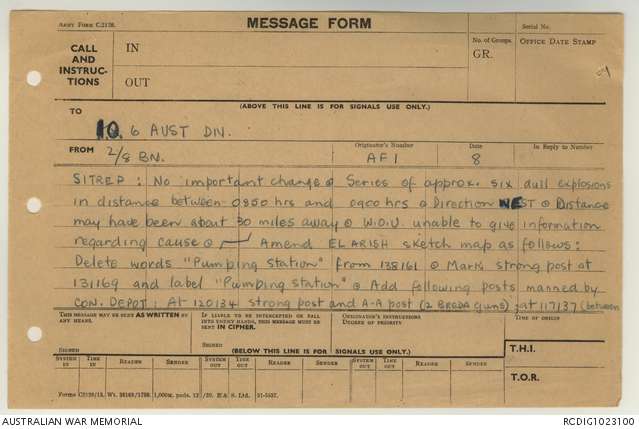 ARMY FORM C2128.
MESSAGE FORM
Serial No.
CALL AND INSTRUCTIONS
IN
OUT
No. of Groups.
GR.
OFFICE DATE STAMP
(ABOVE THIS LINE IS FOR SIGNALS USE ONLY.)
TO
I.O. 6 AUST DIV.
FROM
2/8 BN.
Originator's Number
AF1
Date
8
In Reply to Number
SITREP: No important change @ Series of approx. six dull explosions
in distance between 0850 hrs and 0900 hrs @ Direction WEST @ Distance
may have been about 30 miles away @ W.O.U. unable to give information
regarding cause @ Amend EL ARISH sketch map as follows:
Delete words "Pumping Station" from 138161 @ Mark strong post at
131169 and label "Pumping Station" @ Add following posts manned by
CON. DEPOT: At 120134 strong post and A-A post (2 BREDA guns); at 117137 (between
THIS MESSAGE MAY BE SENT AS WRITTEN BY ANY MEANS.
IF LIABLE TO BE INTERCEPTED OR FALL INTO ENEMY HANDS, THIS MESSAGE MUST BE SENT IN CIPHER.
ORIGINATOR'S INSTRUCTIONS
DEGREE OF PRIORITY
TIME OF ORIGIN
SIGNED
SIGNED
(BELOW THIS LINE IS FOR SIGNALS USE ONLY.)
T.H.I.
SYSTEM IN
TIME IN
READER
SENDER
SYSTEM OUT
TIME OUT
READER
SENDER
SYSTEM OUT
TIME OUT
READER
SENDER
T.O.R.
AUSTRALIAN WAR MEMORIAL
RCDIG1023100